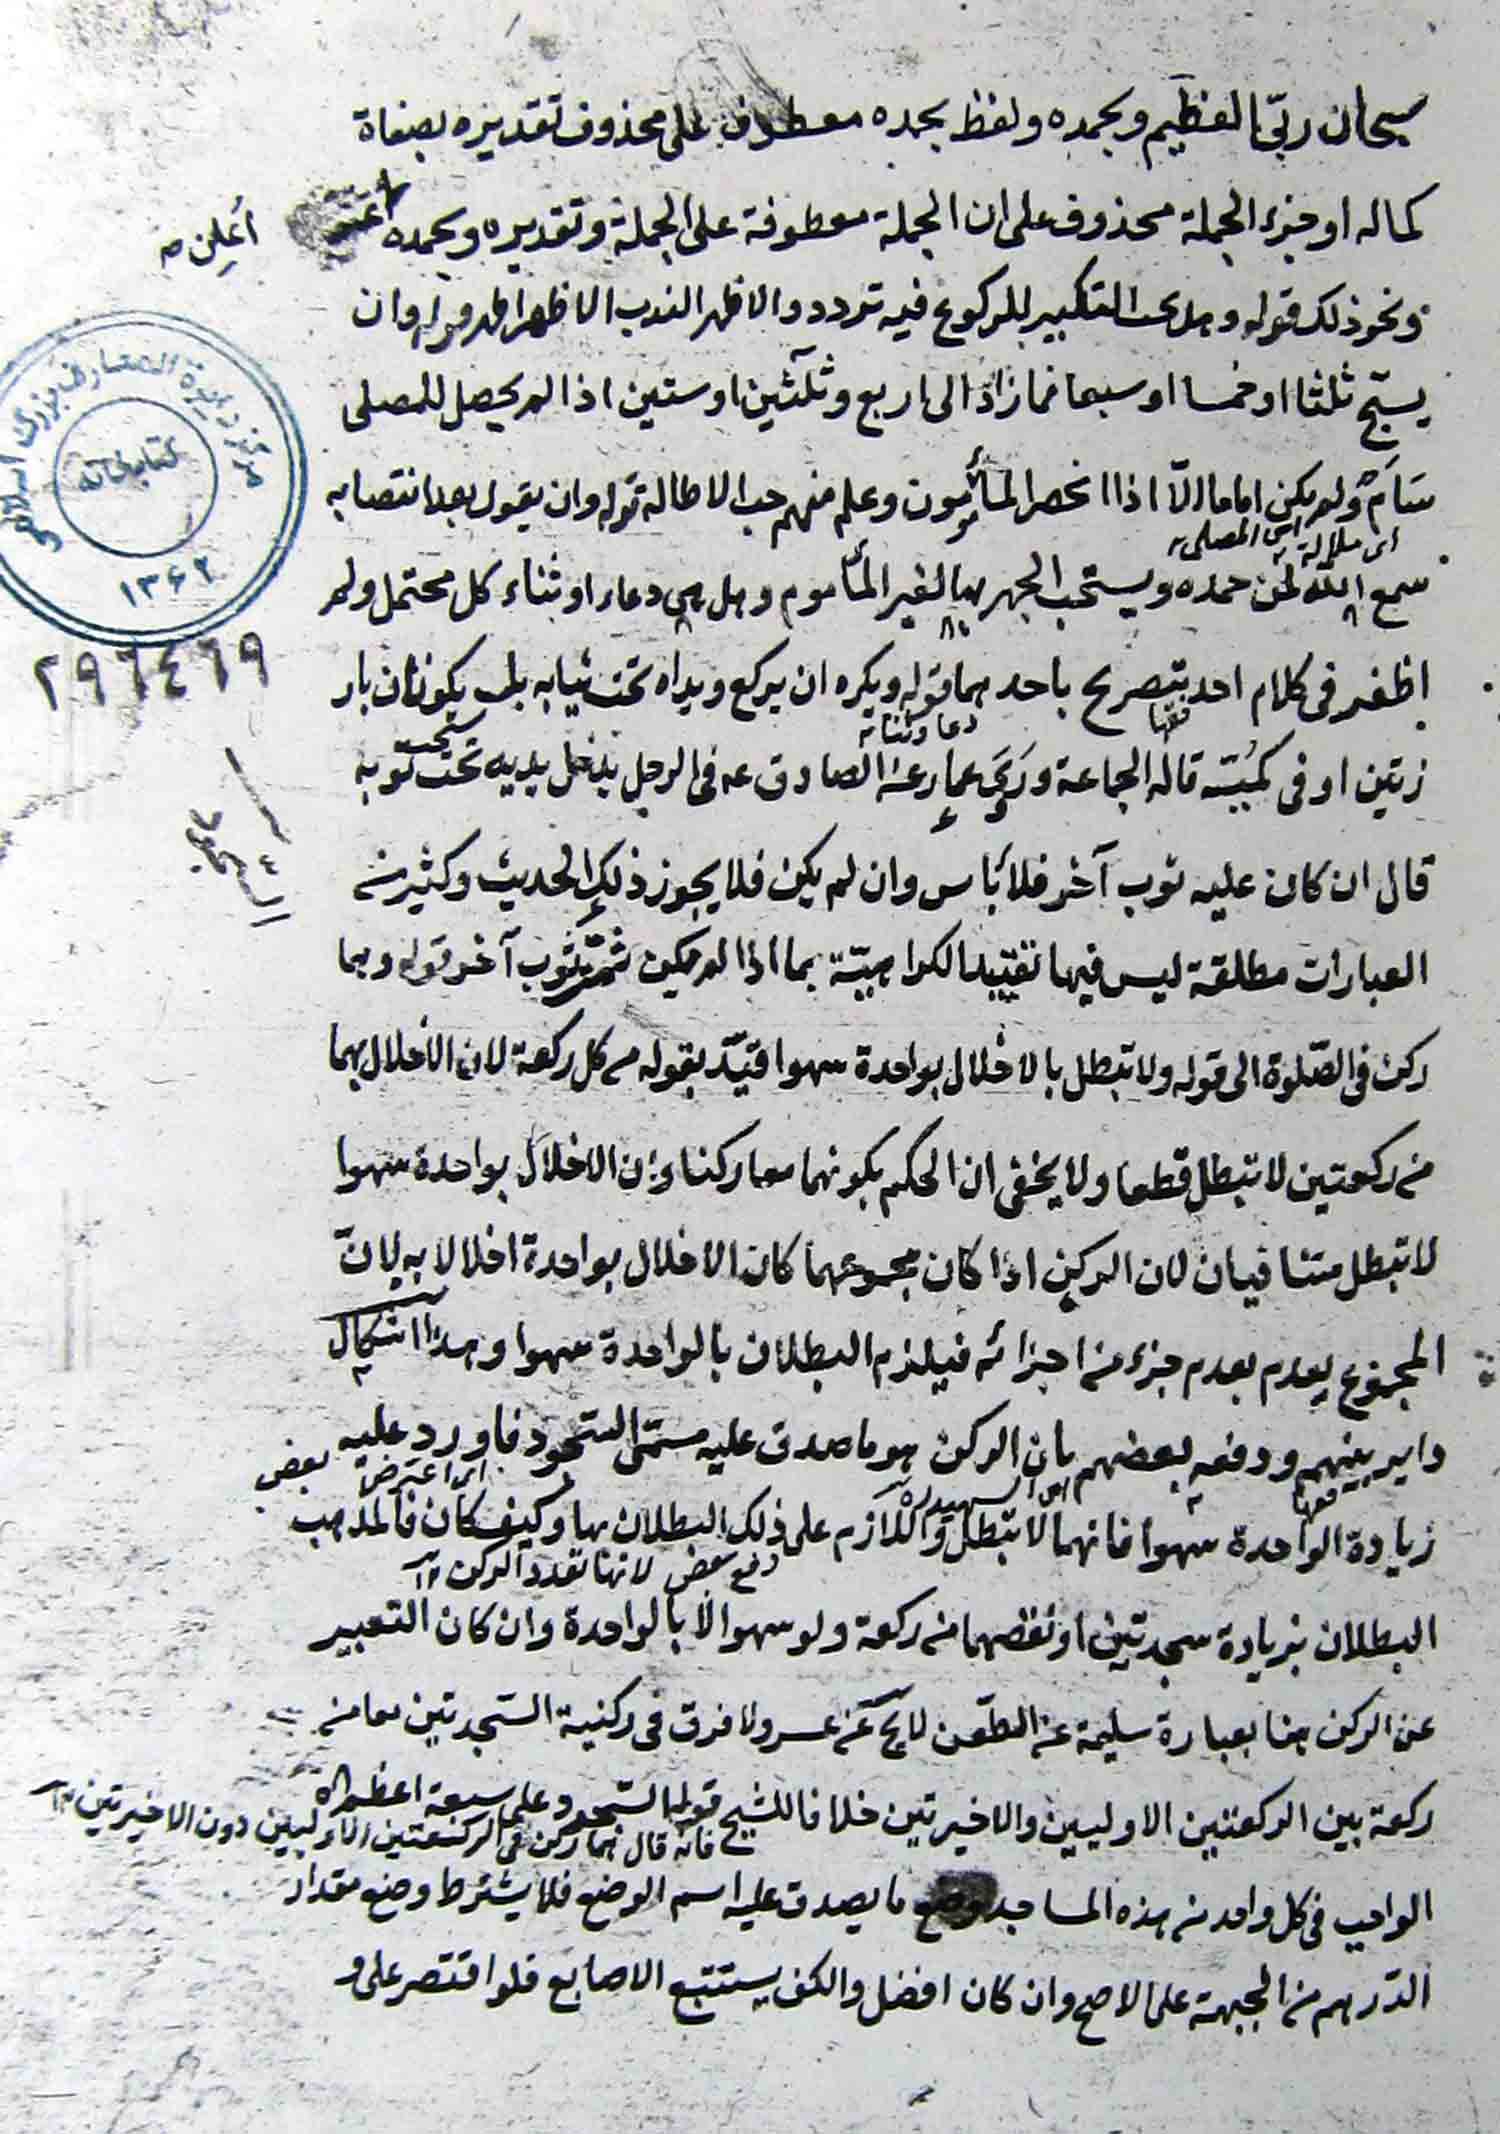 سبحان ربّي العظيم وبحمده ولفظ بحمده معطوف على محذوف تقديره بصفاة
كماله او جزء الجملة محذوف على ان الجملة معطوفة على الجملة وتقديره وبحمده
أعلن صه
ونحو ذلك قوله وهل يجب التكبير للركوع فيه تردد والاظهر الندب الاظهر اظهر قوله وان
يسبّح ثلثا او خمسا او سبعا فما زاد الى اربع وثلثين او ستين اذا لم يحصل للمصلى
سَأم ولم يكن اماما الّا اذا انحصر المأمومون وعلم منهم حب الاطالة قوله وان يقول بعد انتصابه
اى ملالة اى المصلى
سمع الله لمن حمده ويستحب الجهر بها لغير المأموم وهل هي دعاء او ثناء كل محتمل ولم
اظفر فى كلام احد بتصريح باحدهما قوله ويكره ان يركع ويداه تحت ثيابه بل يكونان بار
دعا وثنا
زتين او فى كميّه قاله الجماعة وروى عمار عن الصادق عه فى الرجل يدخل يديه تحت ثوبه
قال ان كان عليه ثوب آخر فلا بأس وان لم يكن فلا يجوز ذلك الحديث وكثير من
العبارات مطلقة ليس فيها تقييد الكراهيّة بما اذا لم يكن ثمّ ثوب آخر قوله وهما
ركن فى الصّلوة الى قوله ولا تبطل بالاخلال بواحدة سهوا قيّد بقوله من كل ركعة لان الاخلال بهما
من ركعتين لا تبطل قطعا ولا يخفى ان الحكم بكونهما معا ركنا وان الاخلال بواحدة سهوا
لا تبطل متنافيان لان الركن اذا كان مجموعهما كان الاخلال بواحدة اخلالا به لانّ
المجموع يعدم بعدم جزء من اجزائه فيلزم البطلان بالواحدة سهوا وهذا اشكال
داير بينهم ودفعه بعضهم بان الركن هو ما صدق عليه مسمّى السّجود فاورد عليه
اى اعترض بعض
زيادة الواحدة سهوا فانهما لا تبطل واللازم على ذلك البطلان بها وكيف كان فالمذهب
دفع بعض لانها تعدد الركن
البطلان بزيادة سجدتين او نقصهما من ركعة ولو سهوا لا بالواحدة وان كان التعبير
عن الركن هنا بعبارة سليمة عن الطّعن لا يخ عن عسر ولا فرق فى ركنية السّجدتين معا من
ركعة بين الركعتين الاوليين والاخيرتين خلافا للشيخ قوله السّجود على سبعة اعظم
فانه قال هما ركن فى الركعتين الاوليين دون الاخيرتين
الواجب فى كل واحد من هذه المساجد وضع ما يصدق عليه اسم الوضع فلا يشترط وضع مقدار
الدّرهم من الجبهة على الاصح وان كان افضل والكف يستتبع الاصابع فلو اقتصر على و
مركز دايرة المعارف بزرگ اسلامى
كتابخانه
١٣٦٢
٢٩٦٤٦٩